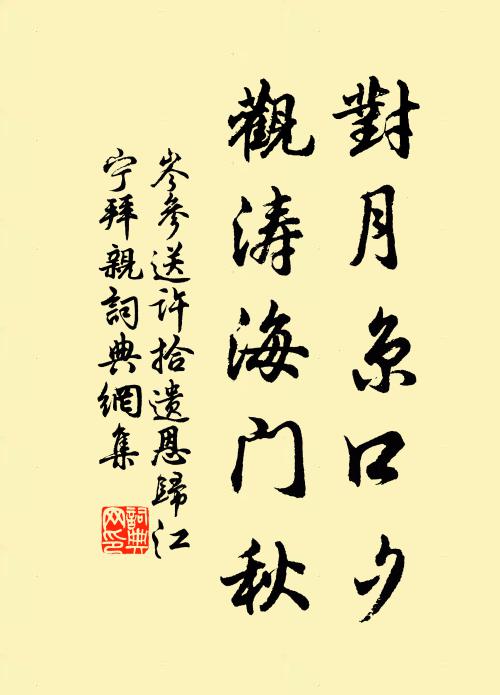 對月京口夕
觀濤海门秋
岑參送许拾遗恩歸江
宁拜親詞典網集
詞典网印